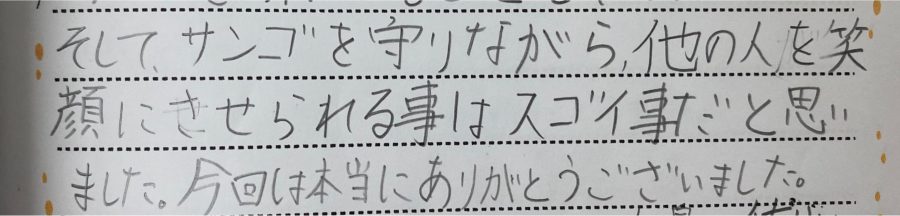 そして、サンゴを守りながら、他の人を笑
顔にさせられる事はスゴイ事だと思い
ました。今回は本当にありがとうございました。